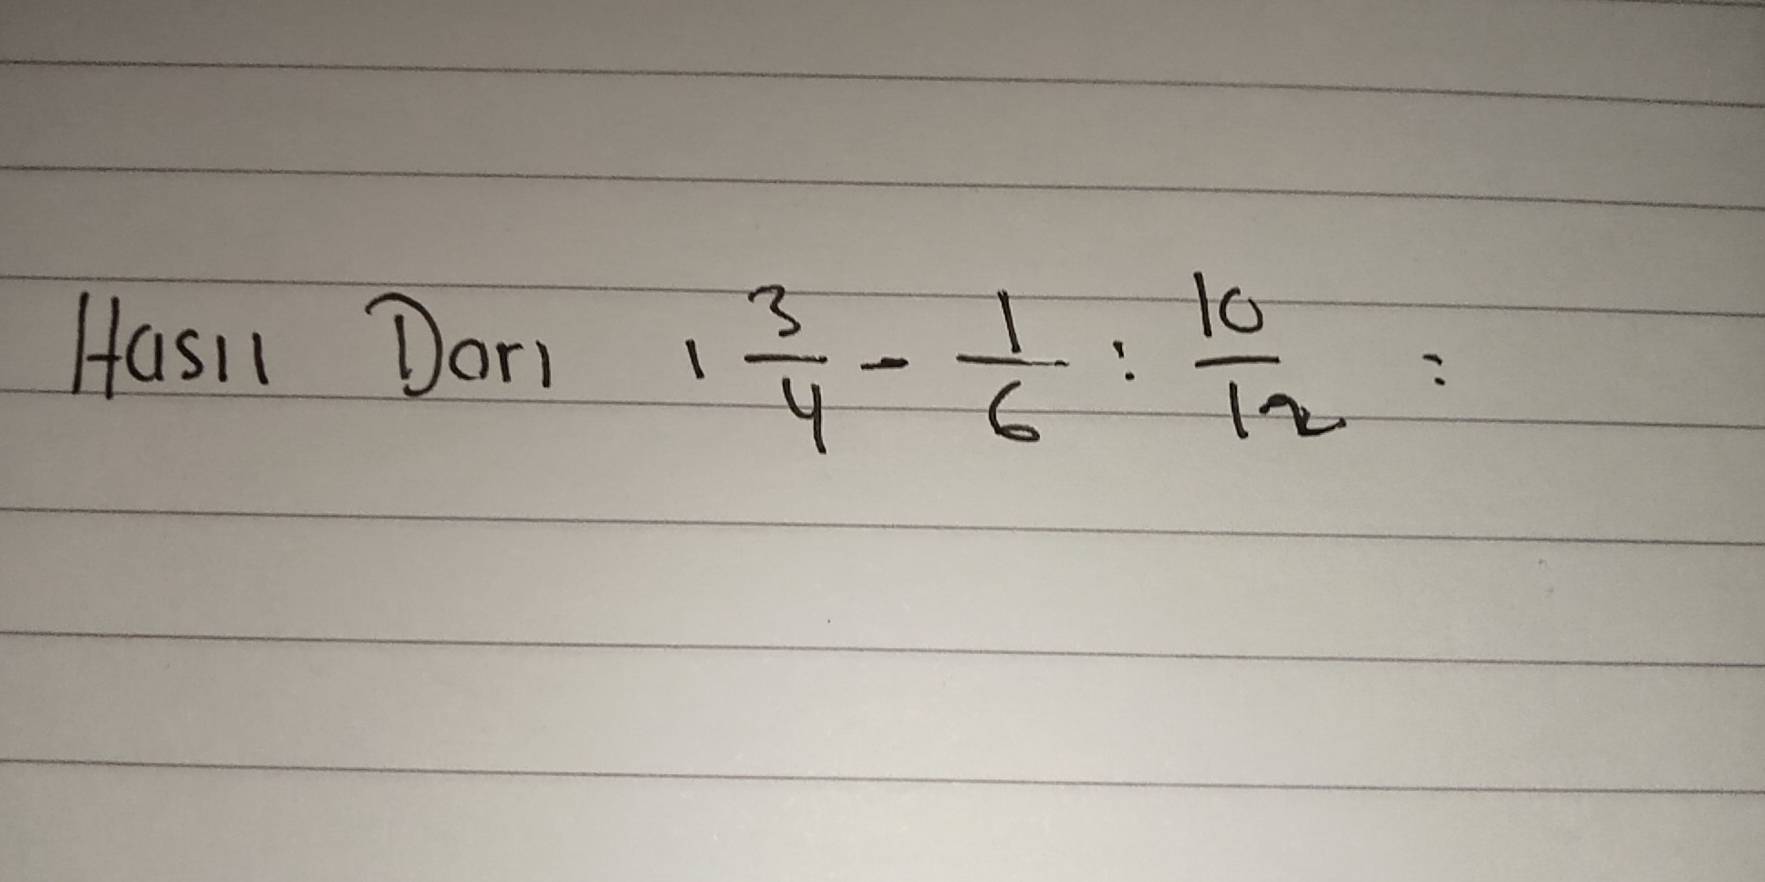 Hasil Dari 1 3/4 - 1/6 : 10/12 =